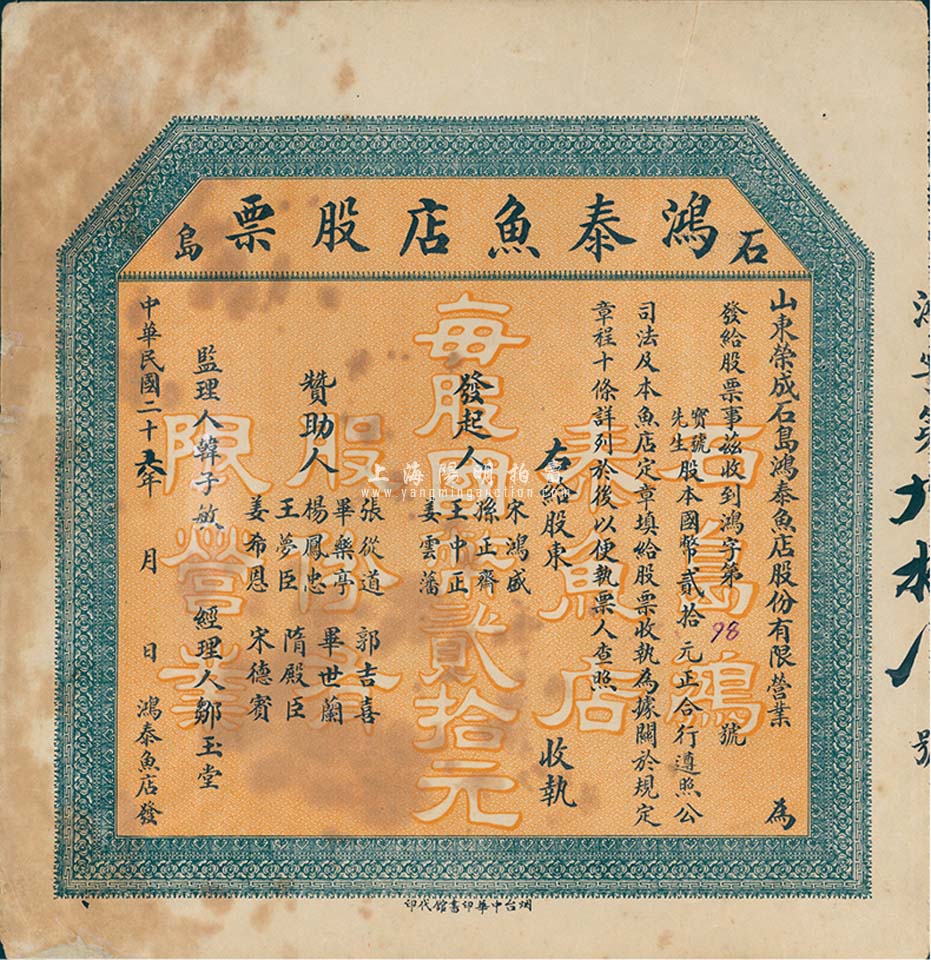 石島
鴻泰魚店股票
山東榮成石島鴻泰魚店股份有限營業 為
發給股票事茲收到鴻字第 98 號
寶號
先生
股本國幣貳拾元正合行遵照公
司法及本魚店定章填給股票收執為據關於規定
章程十條詳列於後以便執票人查照
右給股東 收執
發起人
宋鴻盛
孫正齊
王中正
姜雲藩
贊助人
張從道 郭吉喜
畢樂亭 畢世蘭
楊鳳忠 隋殿臣
王夢臣 宋德賓
姜希恩
監理人韓子敏 經理人鄒玉堂
中華民國二十六年 月 日 鴻泰魚店發
石島鴻
泰魚店
每股國幣貳拾元
股份有
限營業
烟台中華印書館代印
上海陽明拍賣
www.yangmingauction.com
號